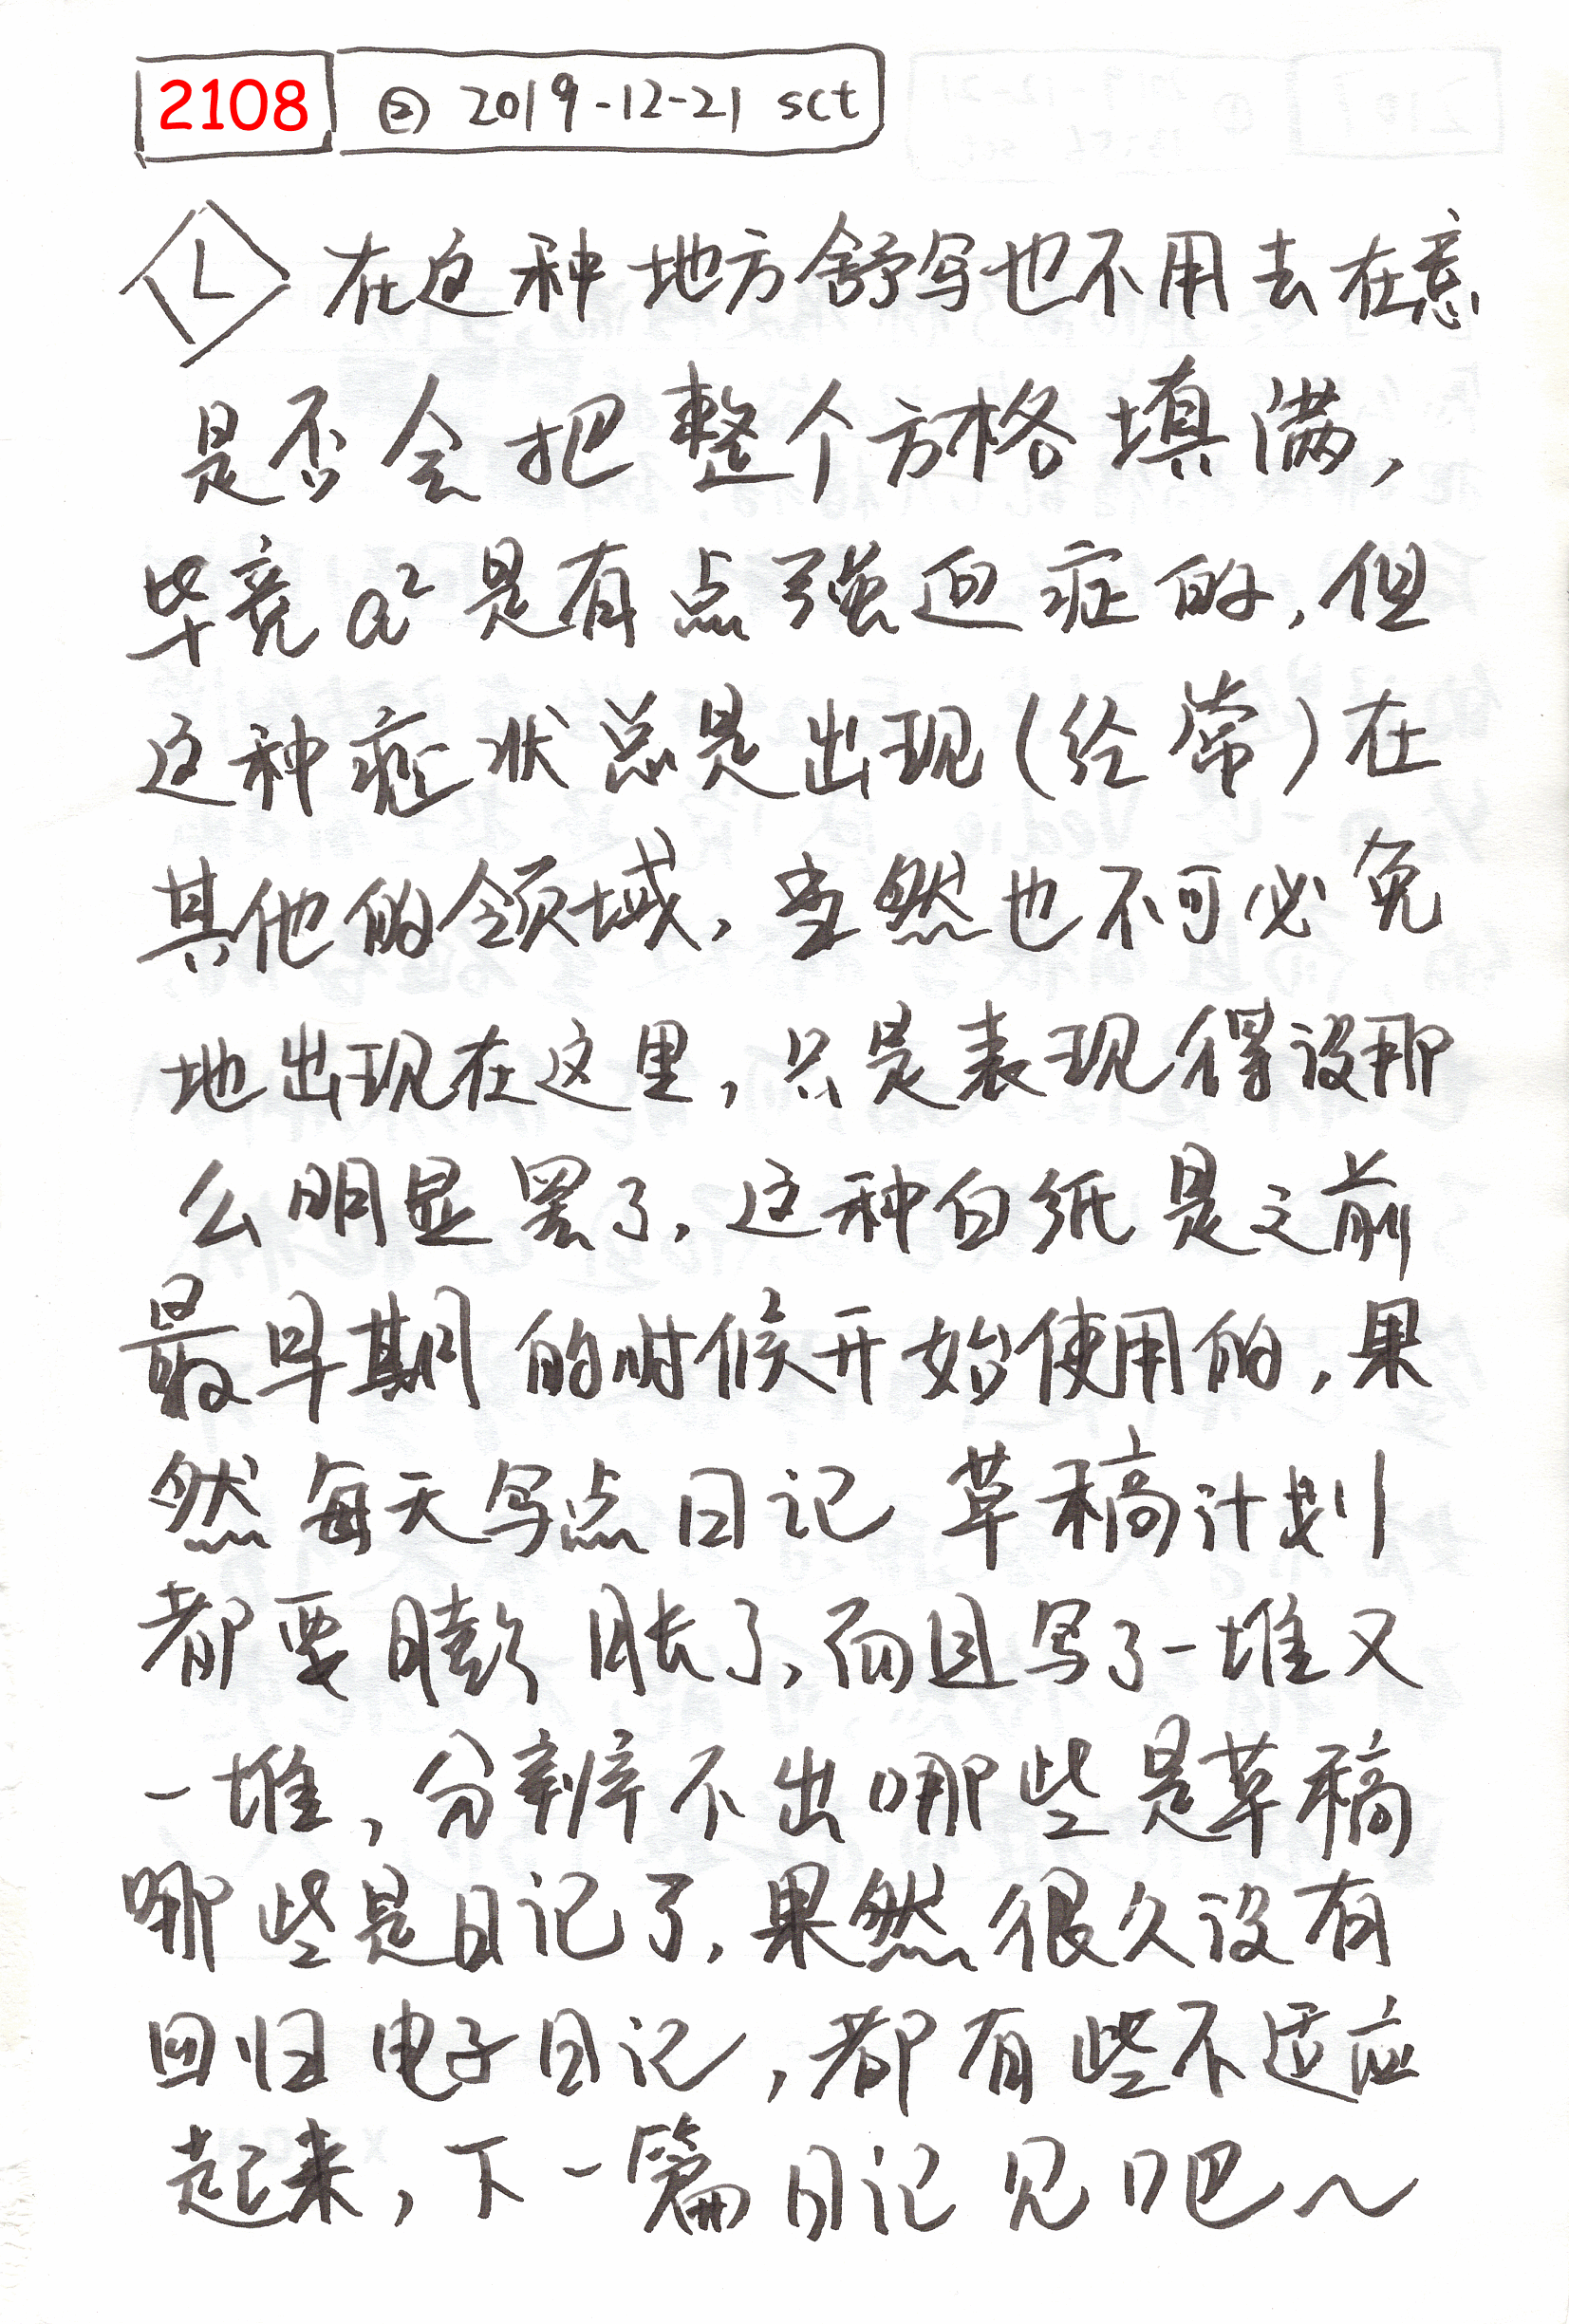 2108 ② 2019-12-21 sct
L 在这种地方舒写也不用去在意
是否会把整个方格填满,
毕竟a²是有点强迫症的,但
这种症状总是出现(经常)在
其他的领域,当然也不可必免
地出现在这里,只是表现得没那
么明显罢了,这种白纸是之前
最早期的时候开始使用的,果
然每天写点日记 草稿计划
都要膨胀了,而且写了一堆又
一堆,分辨不出哪些是草稿
哪些是日记了,果然很久没有
回归电子日记,都有些不适应
起来,下一篇日记见吧~